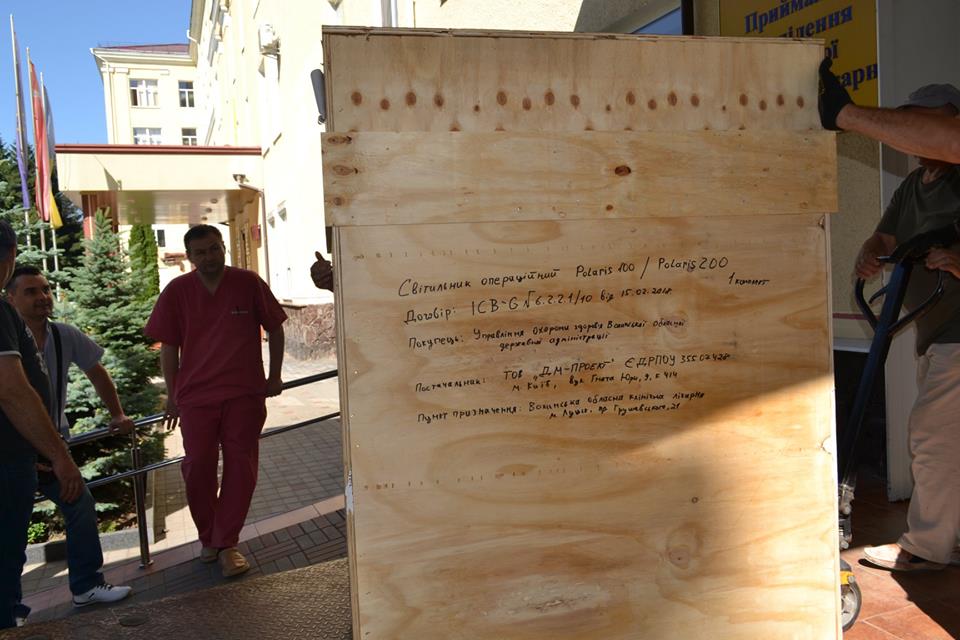 Приймал
ділення
ої
карн
Світильник операційний Polaris 100 / Polaris 200
1 комплект
Договір: ICB-G №6.2.2.1/10 від 15.02.2018
Покупець: Управління охорони здоров'я Волинської обласної
державної адміністрації
Постачальник: ТОВ „ДМ-ПРОЕКТ" ЄДРПОУ 35507428
м. Київ, вул Гната Юри, 9, к 414
Пункт призначення: Волинська обласна клінічна лікарня
м. Луцьк, пр Грушевського, 21